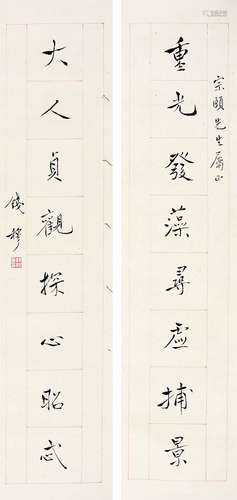 宗頤先生屬正
重光發藻尋虛捕景
大人貞觀探心昭忒
錢穆